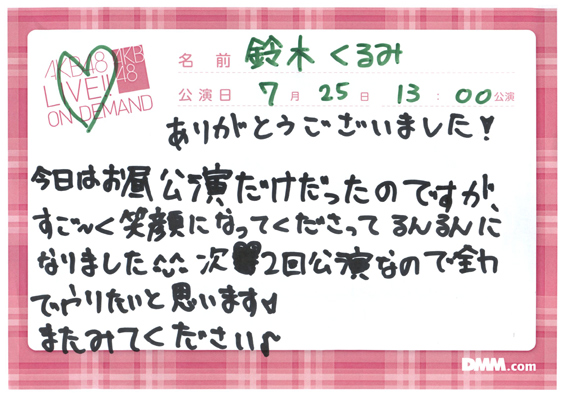 AKB48
LIVE!!
ON DEMAND
AKB
48
名前 鈴木くるみ
公演日 7月25日 13:00公演
ありがとうございました!
今日はお昼公演だけだったのですが、
すご〜く笑顔になってくださってるんるんに
なりました^^ 次♥2回公演なので全力
でやりたいと思います♡
またみてください♪
DMM.com